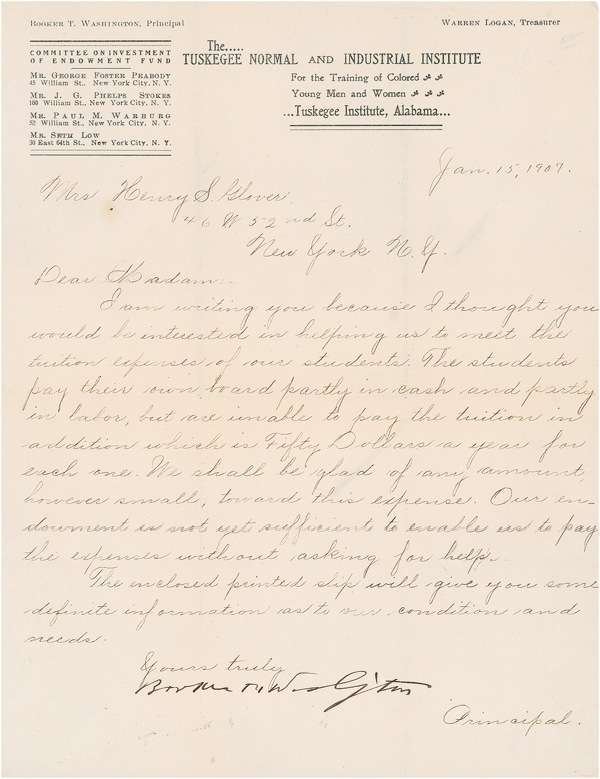 BOOKER T. WASHINGTON, Principal
WARREN LOGAN, Treasurer
COMMITTEE ON INVESTMENT
OF ENDOWMENT FUND
MR. GEORGE FOSTER PEABODY
45 William St., New York City, N. Y.
MR. J. G. PHELPS STOKES
100 William St., New York City, N. Y.
MR. PAUL M. WARBURG
52 William St., New York City, N. Y.
MR. SETH LOW
30 East 64th St., New York City, N. Y.
The.....
TUSKEGEE NORMAL AND INDUSTRIAL INSTITUTE
For the Training of Colored
Young Men and Women
...Tuskegee Institute, Alabama...
Jan. 15, 1907.
Mrs Henry S. Glover
46 W 52nd St.
New York N. Y.
Dear Madam:-
I am writing you because I thought you
would be interested in helping us to meet the
tuition expenses of our students. The students
pay their own board partly in cash and partly
in labor, but are unable to pay the tuition in
addition which is Fifty Dollars a year for
each one. We shall be glad of any amount,
however small, toward this expense. Our en-
dowment is not yet sufficient to enable us to pay
the expenses without asking for help.
The enclosed printed slip will give you some
definite information as to our condition and
needs.
Yours truly
Booker T. Washington
Principal.